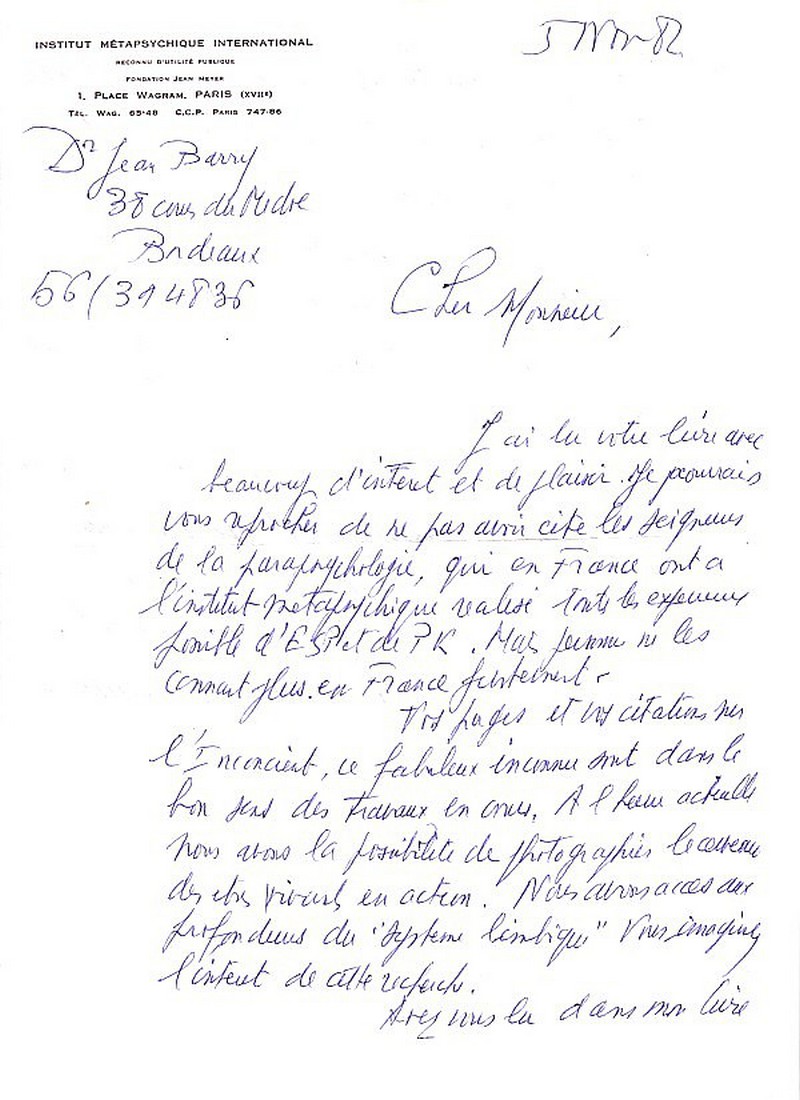 INSTITUT MÉTAPSYCHIQUE INTERNATIONAL
RECONNU D'UTILITÉ PUBLIQUE
FONDATION JEAN MEYER
1, PLACE WAGRAM, PARIS (XVIIe)
TÉL. WAG. 65-48 C.C.P. PARIS 747-86
5 Nov 82
Dr Jean Barry
38 cours du Medoc
Bordeaux
56/394836
Cher Monsieur,
J'ai lu votre livre avec
beaucoup d'intérêt et de plaisir. Je pourrais
vous reprocher de ne pas avoir cité les seigneurs
de la parapsychologie, qui en France ont à
l'institut métapsychique réalisé toutes les expériences
possible d'ESP et de PK. Mais personne ne les
connait plus en France
Vos pages et vos citations sur
l'Inconcient, ce fabuleux inconnu sont dans le
bon sens des travaux en cours. A l'heure actuelle
nous avons la possibilité de photographier le cerveau
des etres vivants en action. Nous avons accès aux
profondeurs du "système limbique" Vous imaginez
l'intérêt de cette recherche.
Avez vous lu dans mon livre